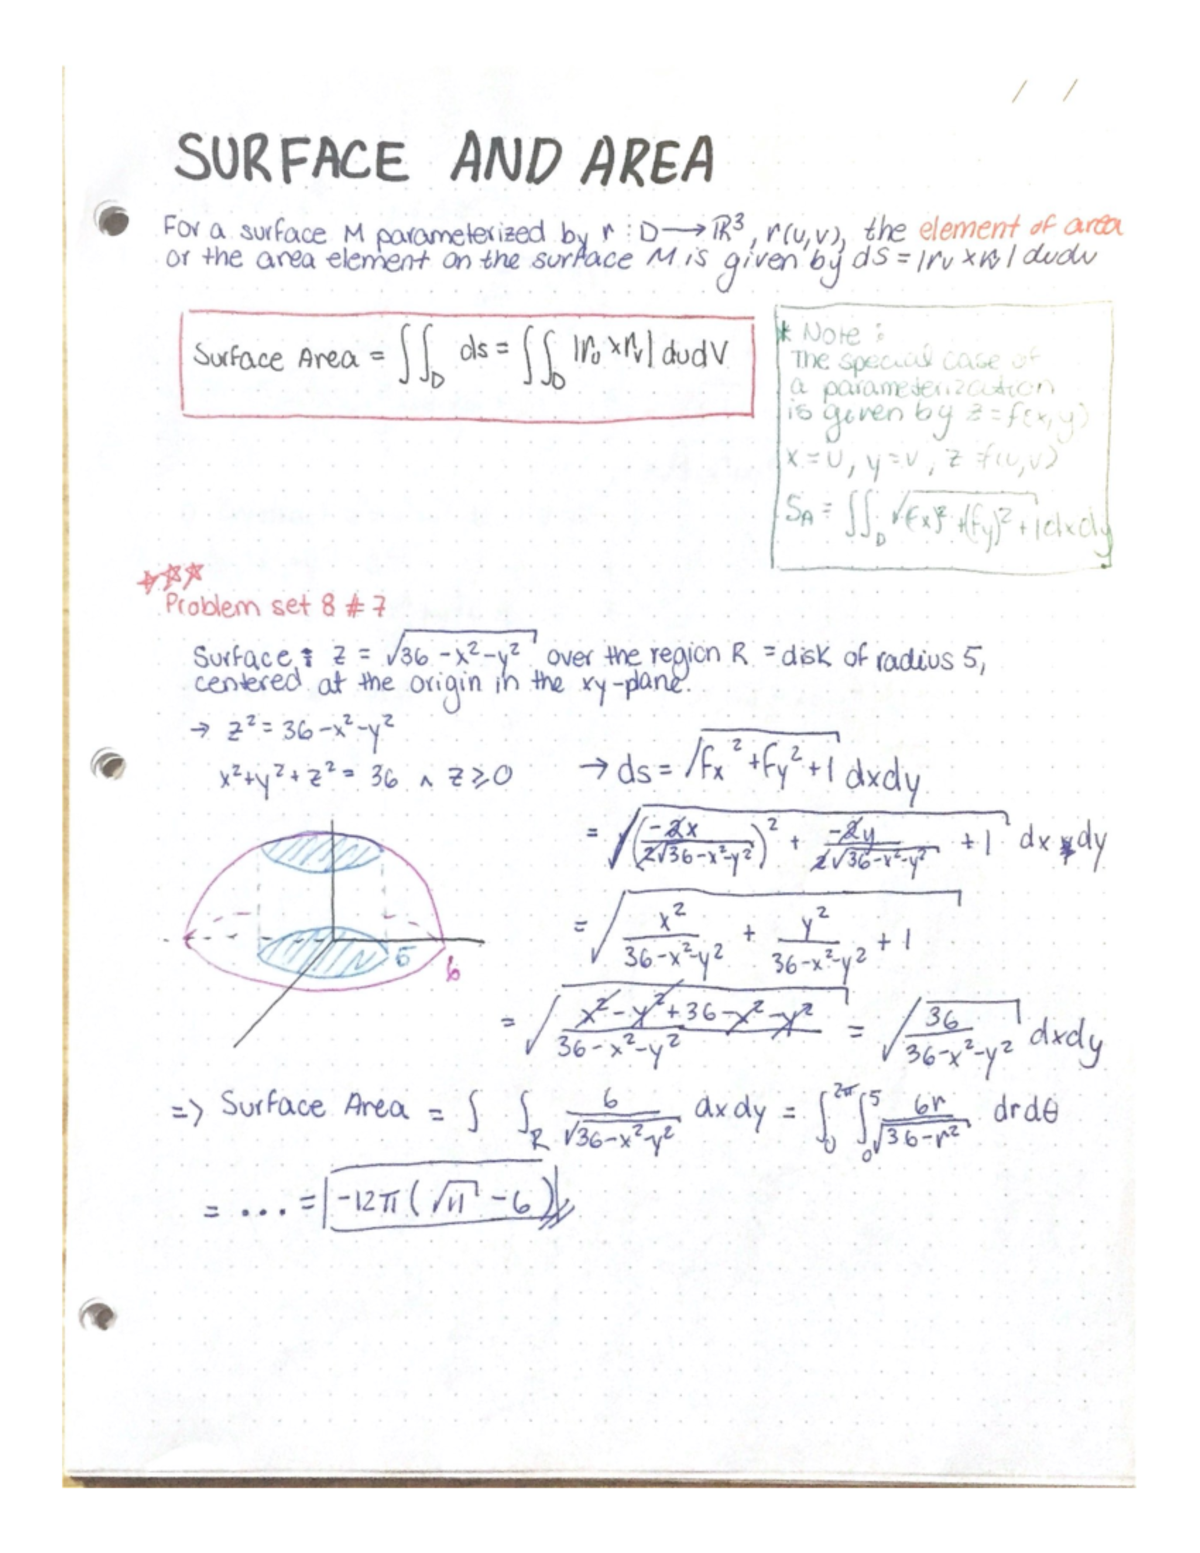 / /
SURFACE AND AREA
For a surface M parameterized by r : D → ℝ³, r(u,v), the element of area
or the area element on the surface M is given by dS = |ru × rv| dudv
Surface Area = ∬_D ds = ∬_D |ru × rv| dudV
* Note :
The special case of
a parameterization
is given by z = f(x,y)
x = U, y = v, z = f(u,v)
S_A = ∬_D √((fx)² + (fy)² + 1) dxdy
Problem set 8 # 7
Surface : z = √(36 - x² - y²) over the region R = disk of radius 5,
centered at the origin in the xy-plane.
→ z² = 36 - x² - y²
x² + y² + z² = 36 ∧ z ≥ 0
→ ds = √(fx² + fy² + 1) dxdy
= √((-2x / 2√(36-x²-y²))² + -2y / 2√(36-x²-y²) + 1) dx dy
= √(x² / (36-x²-y²) + y² / (36-x²-y²) + 1)
5
6
= √((x² - y² + 36 - x² - y²) / (36-x²-y²)) = √(36 / (36-x²-y²)) dxdy
=> Surface Area = ∫ ∫_R 6 / √(36-x²-y²) dxdy = ∫₀^2π ∫₀^5 6r / √(36-r²) drdθ
= ... = -12π(√11 - 6)